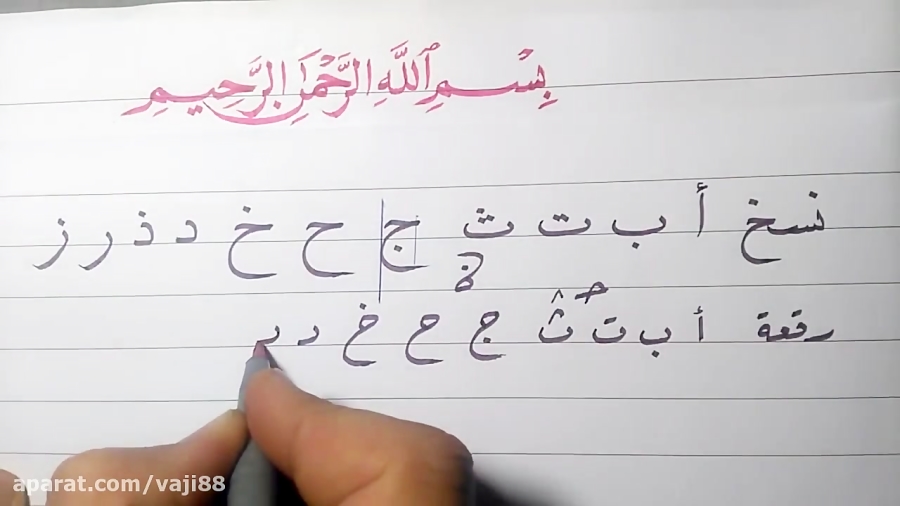 بِسْمِ ٱللَّهِ الرَّحْمَٰنِ الرَّحِيمِ
نسخ أ ب ت ث ج ح خ د ذ ر ز
رقعة أ ب ت ث ج ح خ د د
aparat.com/vaji88